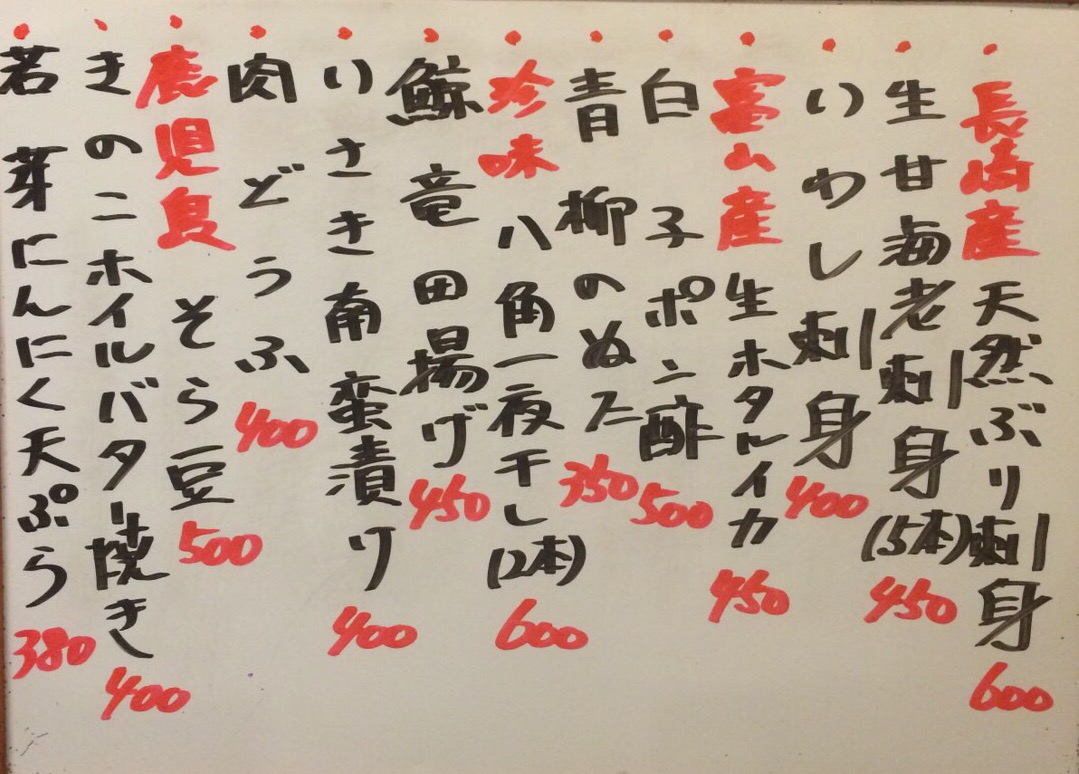 ・長崎産 天然ぶり刺身 600
・生甘海老刺身(5本) 450
・いわし刺身 400
・富山産 生ホタルイカ 450
・白子ポン酢 500
・青柳のぬた 350
・珍味 八角一夜干し(2本) 600
・鯨竜田揚げ 450
・いさき南蛮漬け 400
・肉どうふ 400
・鹿児島 そら豆 500
・きのこホイルバター焼き 400
・若芽にんにく天ぷら 380